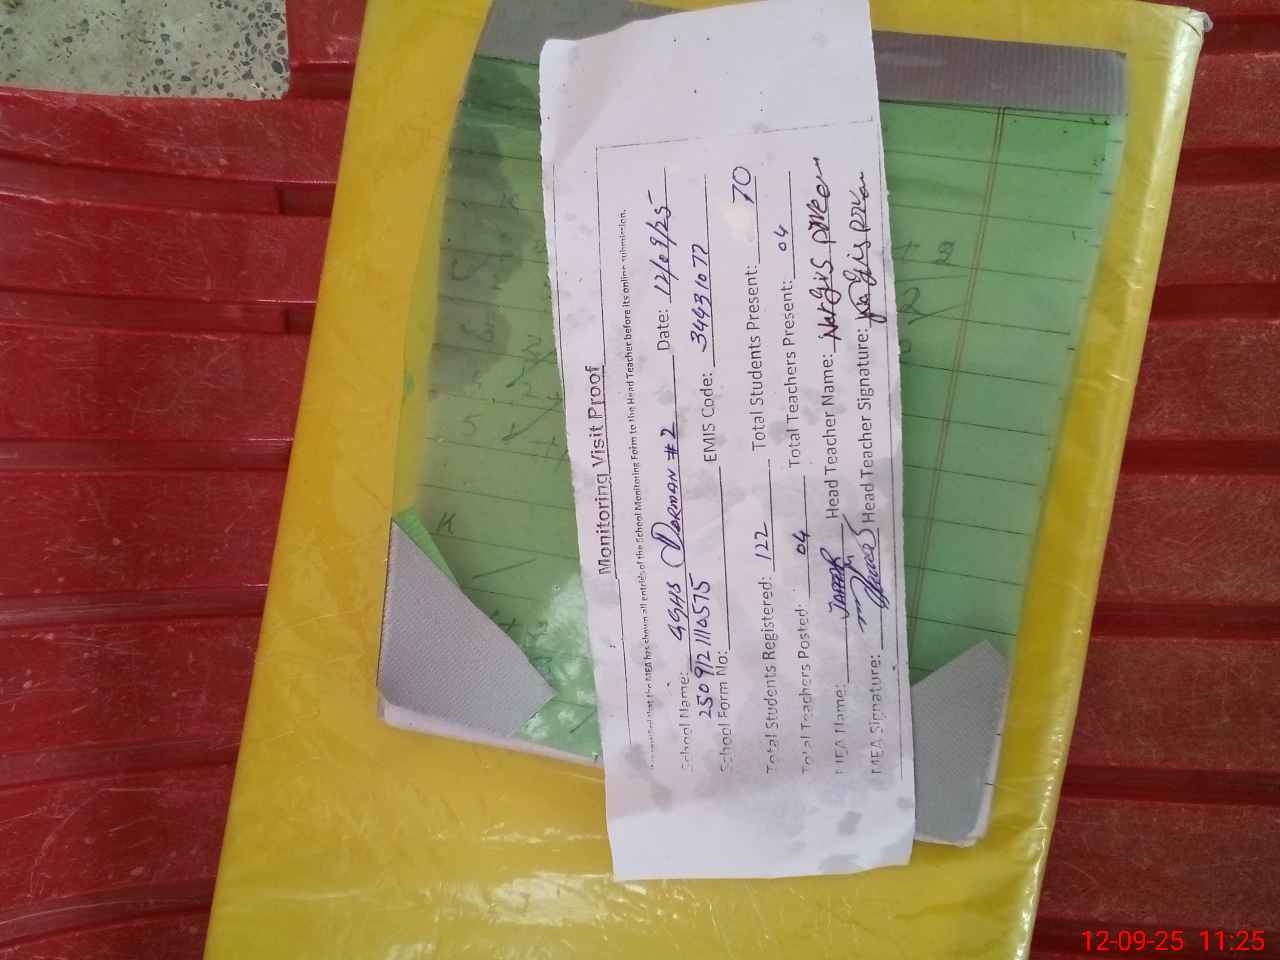 Monitoring Visit Proof
certified that the MEA has shown all entries of the School Monitoring Form to the Head Teacher before its online submission.
School Name: GGHS DORMAN #2 Date: 12/09/25
2509121110575
School Form No: EMIS Code: 34431077
Total Students Registered: 122 Total Students Present: 70
Total Teachers Posted: 04 Total Teachers Present: 04
MEA Name: JAFFAR Head Teacher Name: Nargis prveen
MEA Signature: Head Teacher Signature: Nargis prveen
12-09-25 11:25